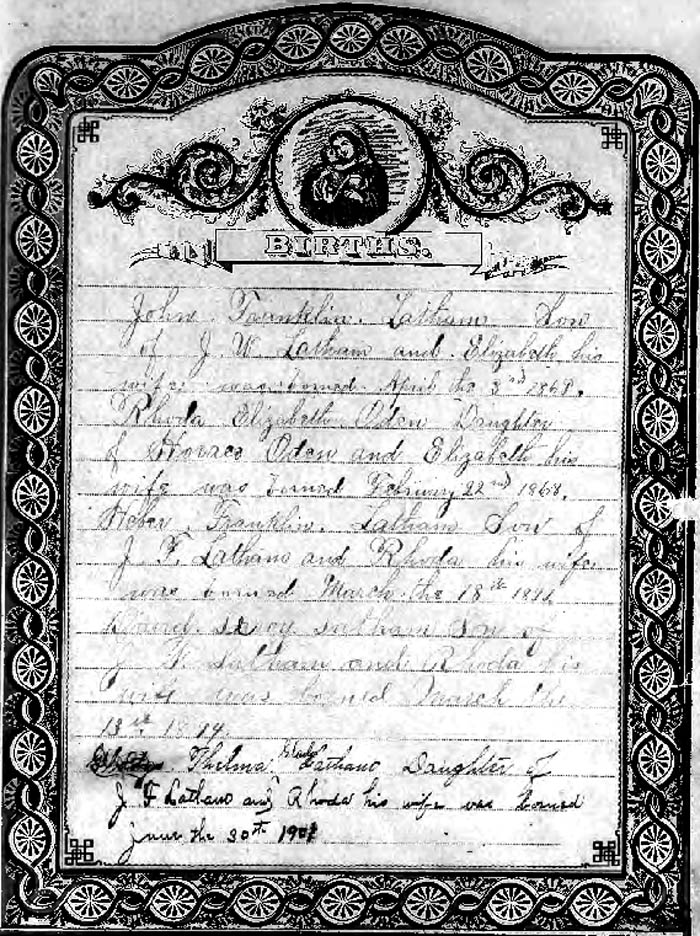 BIRTHS.
John Franklin Latham Son
of J. W. Latham and Elizabeth his
wife was borned April the 3rd 1868.
Rhoda Elizabeth Oden Daughter
of Horace Oden and Elizabeth his
wife was borned Februay 22nd 1868.
Heber Franklin Latham Son of
J. F. Latham and Rhoda his wife
was borned March the 18th
David Latham Son of
J F Latham and Rhoda his
wife was borned March the
1894
Thelma Gladys Latham Daughter of
J F Latham and Rhoda his wife was borned
June the 30th